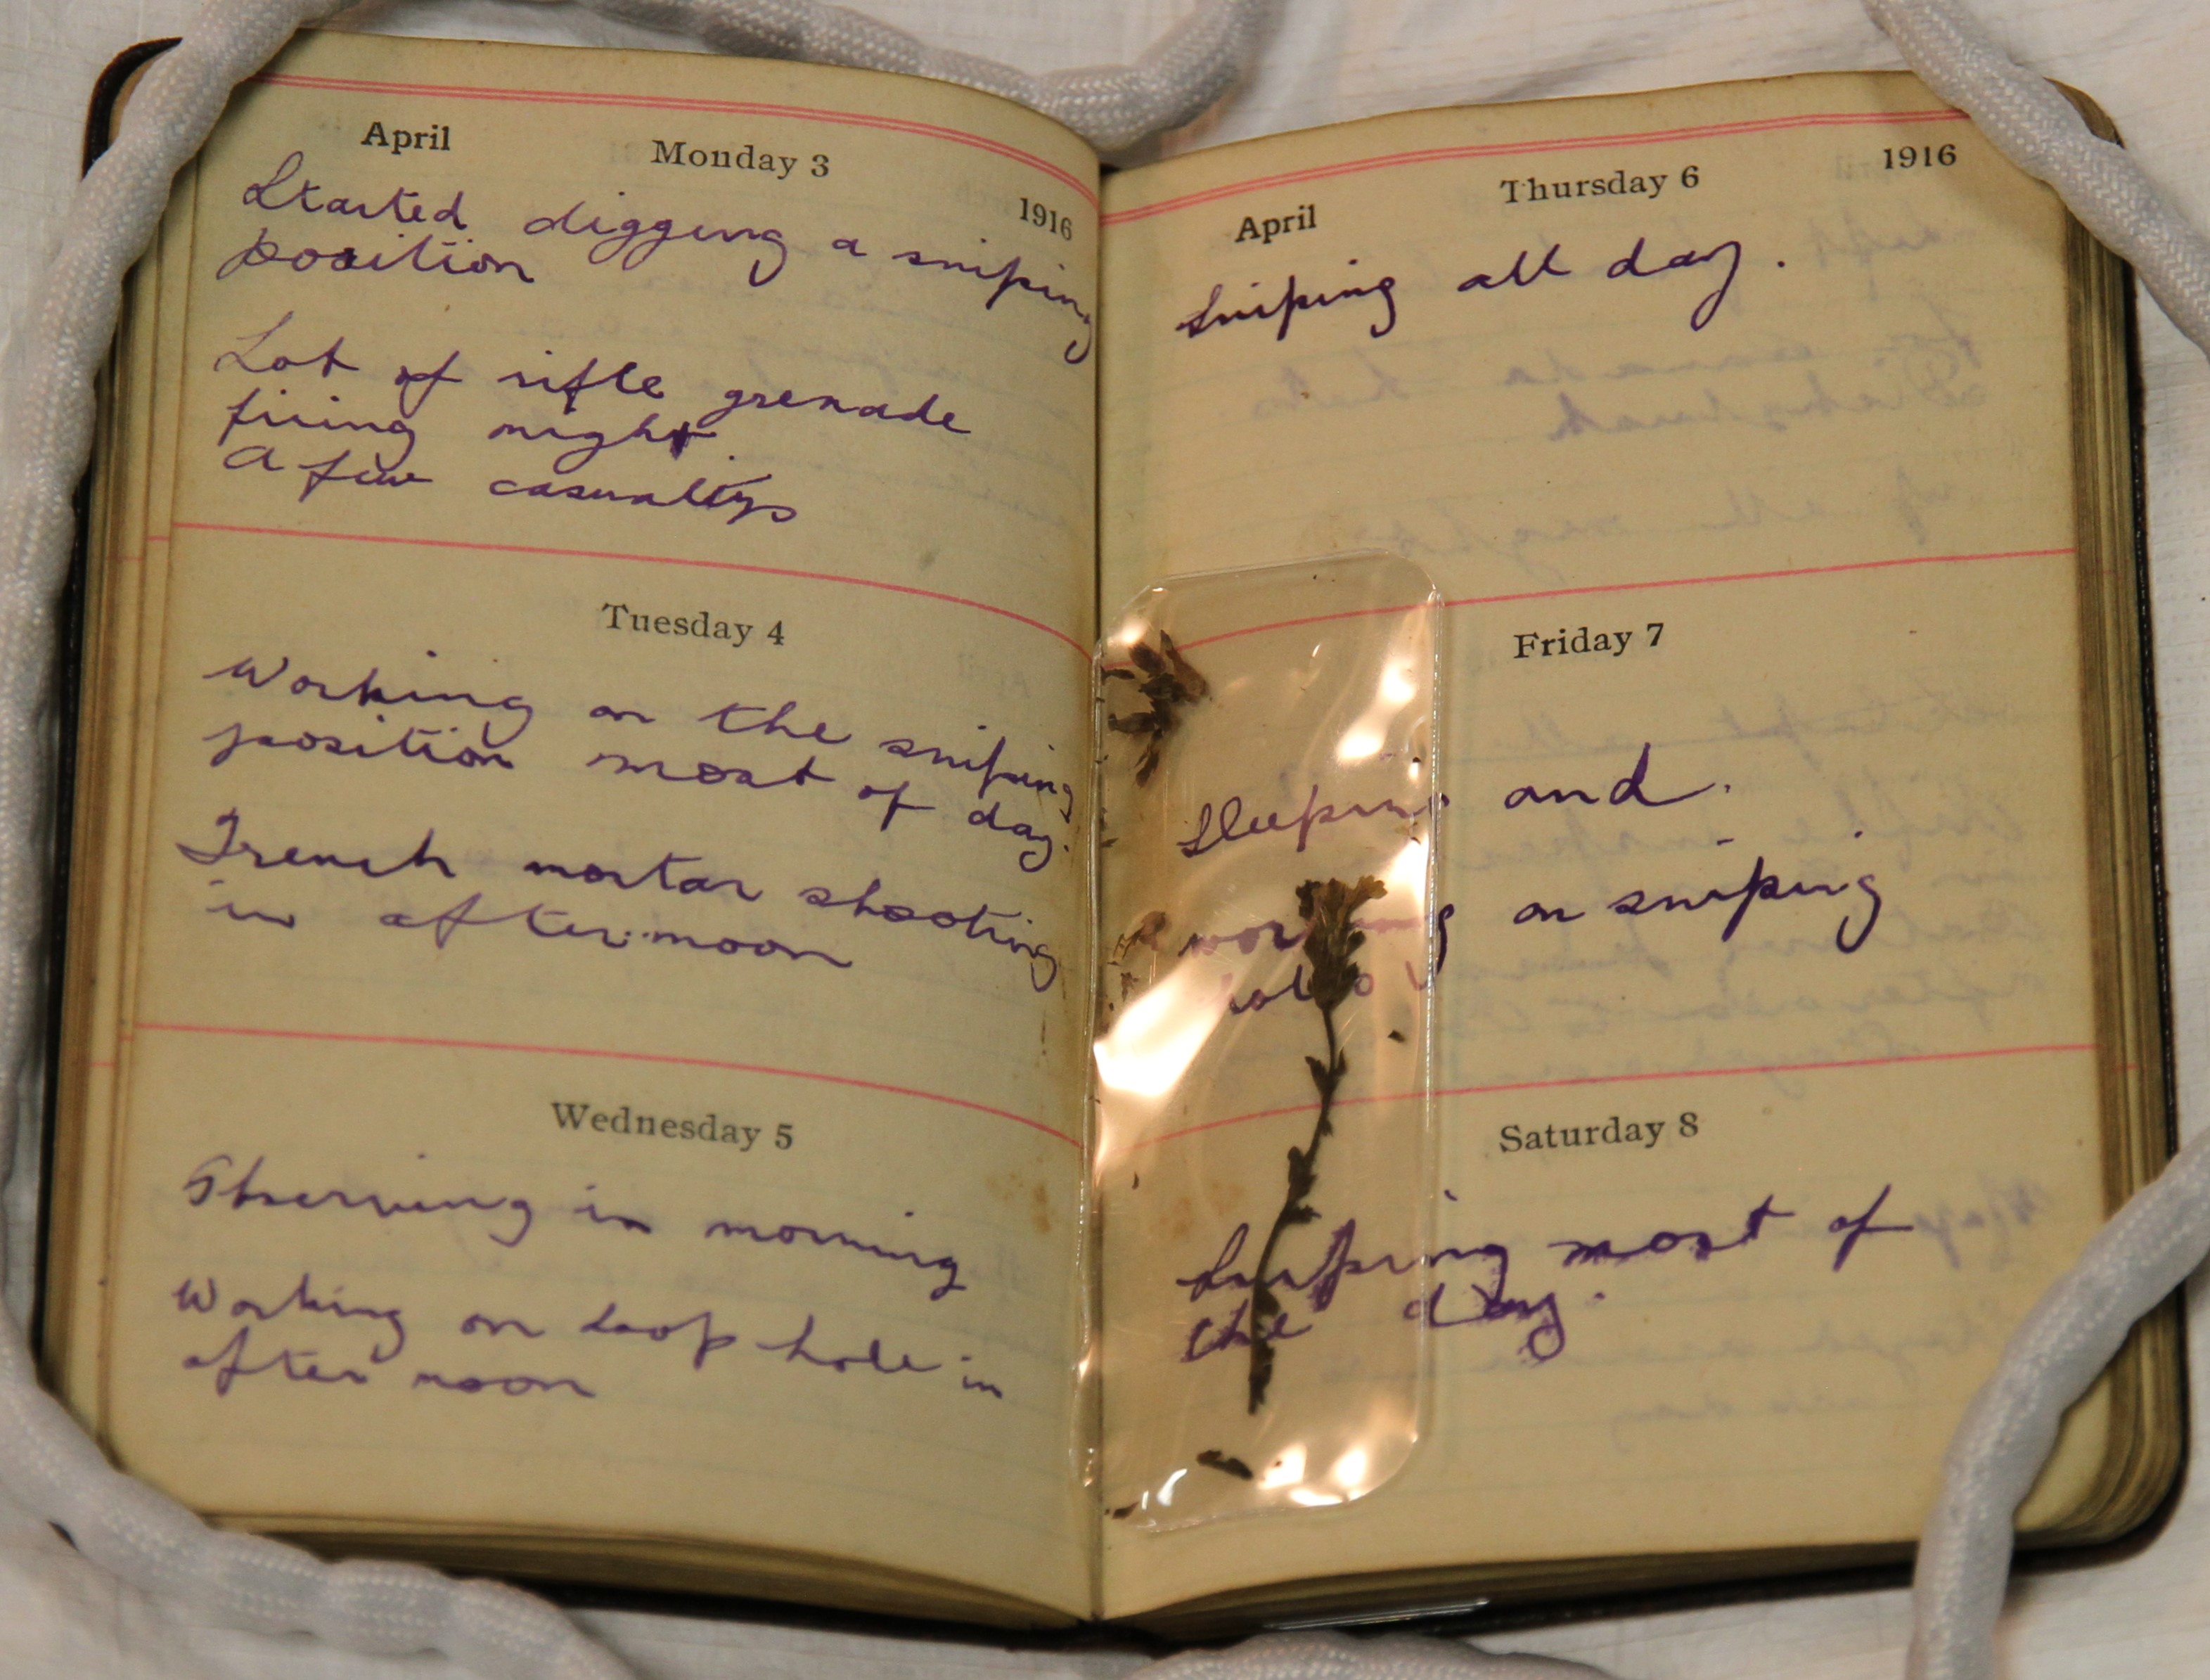 April
Monday 3
1916
Started digging a sniping
position
Lot of rifle grenade
firing night
A few casualtys
Tuesday 4
Working on the sniping
position most of day.
Trench mortar shooting
in after noon
Wednesday 5
Observing in morning
Working on loop hole in
after noon
1916
Thursday 6
April
Sniping all day.
Friday 7
Sleeping and.
working on sniping
Saturday 8
Sniping most of
the day.